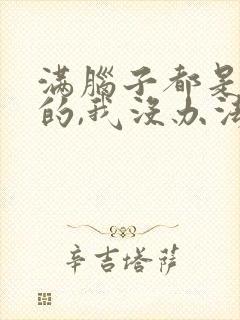 满腦子都是
的,我没办法
辛吉塔萨